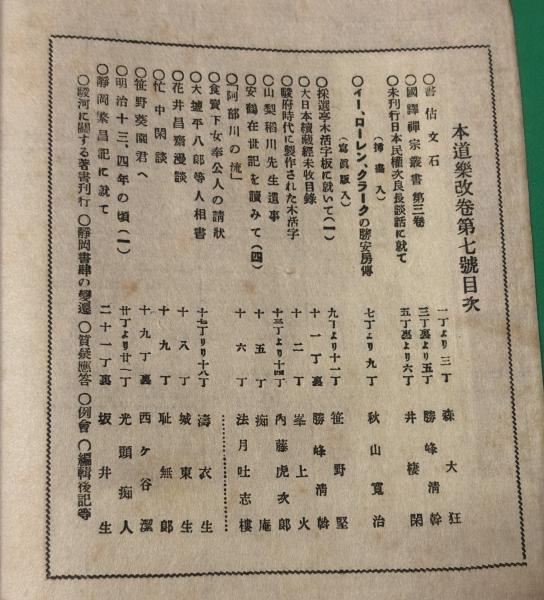 本道樂改卷第七號目次
〇書估文石 一丁より三丁 森大狂
〇國譯禪宗叢書第三卷 三丁裏より五丁 勝峰淸幹
〇未刊行日本民權次良長談話に就て 五丁裏より六丁 井棲閑
(挿畵入)
〇イー、ローレン、クラークの勝安房傳 七丁より九丁 秋山寬治
(寫眞版入)
〇採選亭木活字板に就いて(一) 九丁より十一丁 笹野堅
〇大日本續藏經未收目錄 十一丁裏 勝峰淸幹
〇駿府時代に製作された木活字 十二丁 峯上火
〇山梨稻川先生遺事 十三丁より十四丁 內藤虎次郞
〇安鶴在世記を讀みて(四) 十五丁 痴庵
〇「阿部川の流」 十六丁 法月吐志樓
〇食賣下女奉公人の請狀
〇大塩平八郞等人相書
〇花井昌齋漫談 十七丁より十八丁 濤衣生
〇忙中閑談 十八丁 城東生
〇笹野葵園君へ 十九丁 耻無郞
〇明治十三、四年の頃(一) 十九丁裏 西ケ谷潔
〇靜岡繁昌記に就て 廿丁より廿一丁 光頭痴人
二十一丁裏 坂井生
〇駿河に關する著書刊行〇靜岡書肆の變遷〇質疑應答〇例會〇編輯後記等